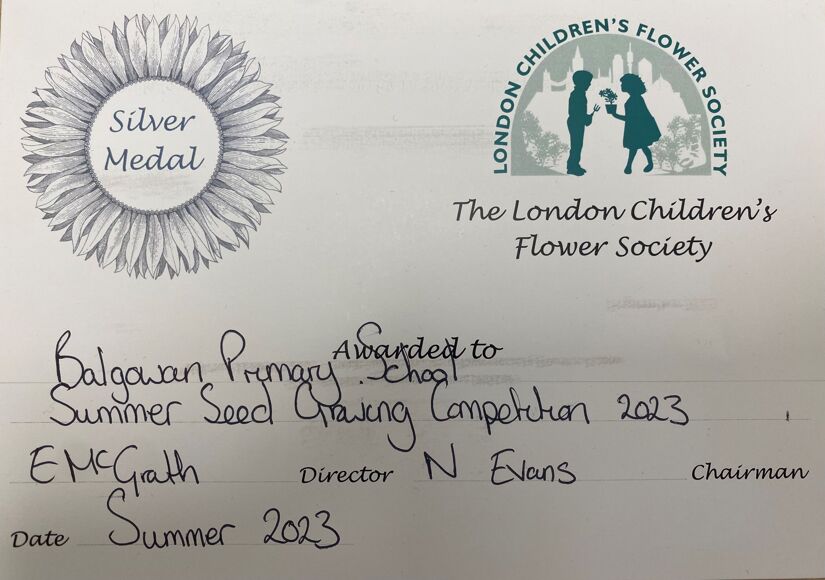 Silver
Medal
LONDON CHILDREN'S FLOWER SOCIETY
The London Children's
Flower Society
Awarded to
Balgowan Primary School
Summer Seed Growing Competition 2023
E McGrath Director N Evans Chairman
Date Summer 2023